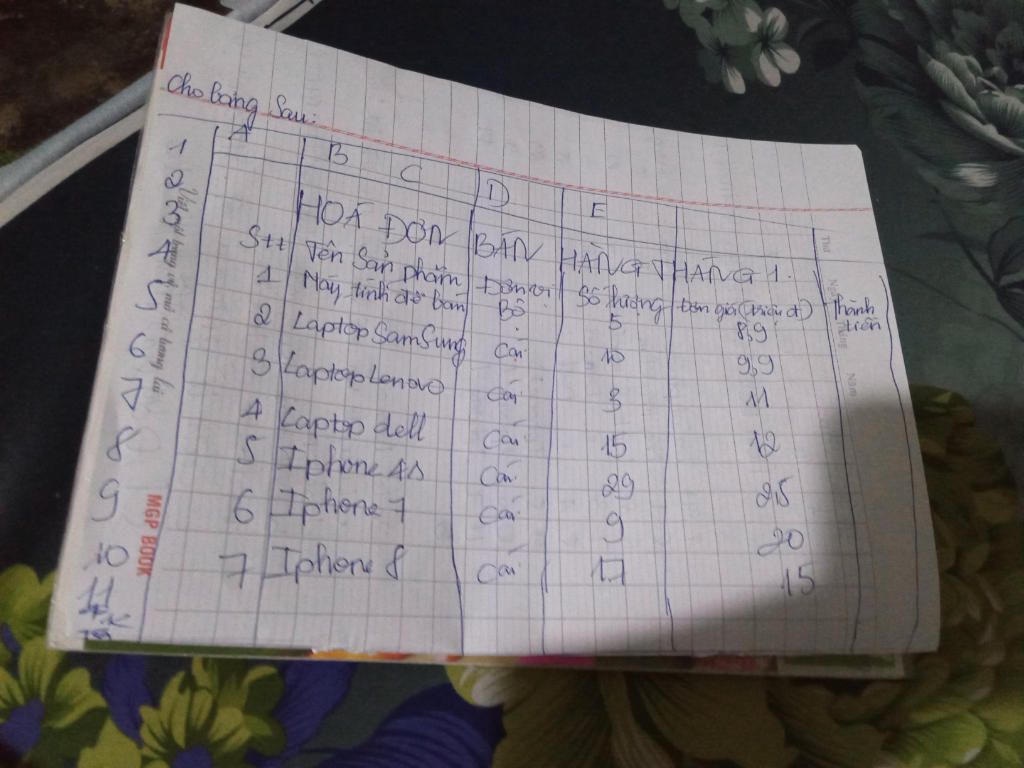 Cho bảng sau:
A B C D E
1
2 HOÁ ĐƠN BÁN HÀNG THÁNG 1.
3 Stt Tên Sản phẩm Đơn vị Số lượng Đơn giá (triệu đ) Thành tiền
4 1 Máy tính để bàn Bộ 5 8,9
5 2 Laptop SamSung Cái 10 9,9
6 3 Laptop Lenovo Cái 3 11
7 4 Laptop dell Cái 15 12
8 5 Iphone 4s Cái 29 25
9 6 Iphone 7 Cái 9 20
10 7 Iphone 8 Cái 17 15
11
MGP BOOK
Thứ
Ngày
Tháng
Năm